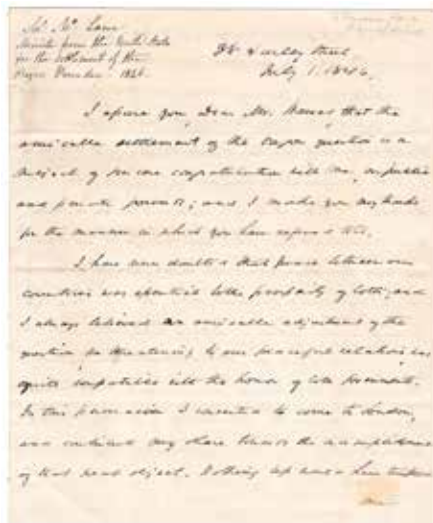 Mr. McLane
Minister from the United States
for the settlement of the
Oregon Boundary 1846.
Harley Street
July 1. 1846.
I assure you, Dear Mr. that the
amicable settlement of the Oregon question is a
subject of sincere congratulation with me, on public
and private grounds; and I made you my thanks
for the manner in which you have expressed
I have never doubted that peace between our
countries was essential to the prosperity of both; and
I always believed an amicable adjustment of the
question, so threatening to our peaceful relations was
quite compatible with the honor of both
In this persuasion I consented to come to London,
and contribute my share towards the accomplishment
of that great object. Nothing